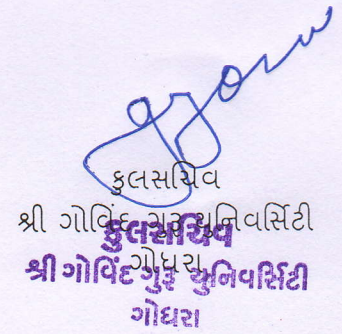 કુલસચિવ
શ્રી ગોવિંદ ગુરુ યુનિવર્સિટી
ગોધરા
કુલસચિવ
શ્રી ગોવિંદ ગુરૂ યુનિવર્સિટી
ગોધરા